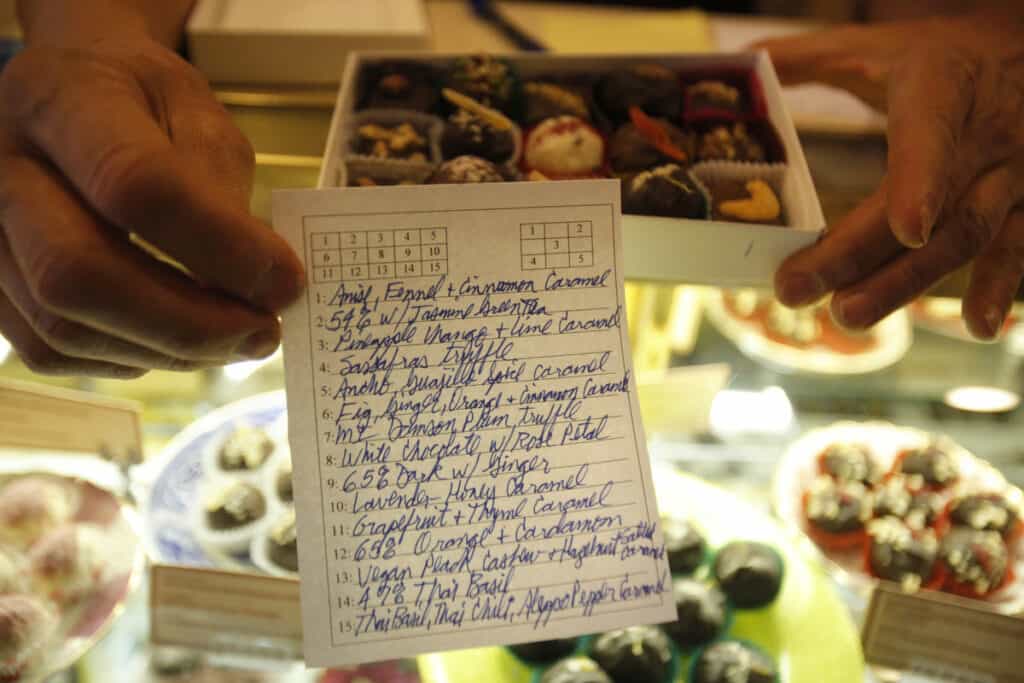 1 2 3 4 5
6 7 8 9 10
11 12 13 14 15
1 2
3
4 5
1: Anise, Fennel + Cinnamon Caramel
2: 54% w/ Jasmine Green Tea
3: Pineapple Mango + Lime Caramel
4: Sassafras Truffle
5: Ancho, Guajillo Spice Caramel
6: Fig, Ginger, Orange + Cinnamon Caramel
7: Damson Plum Truffle
8: White Chocolate w/ Rose Petal
9: 65% Dark w/ Ginger
10: Lavender-Honey Caramel
11: Grapefruit + Thyme Caramel
12: Orange + Cardamon
13: Vegan Cashew + Hazelnut Salted Caramel
14: 47% Thai Basil
15: Thai Basil, Thai Chili, Aleppo Pepper Caramel